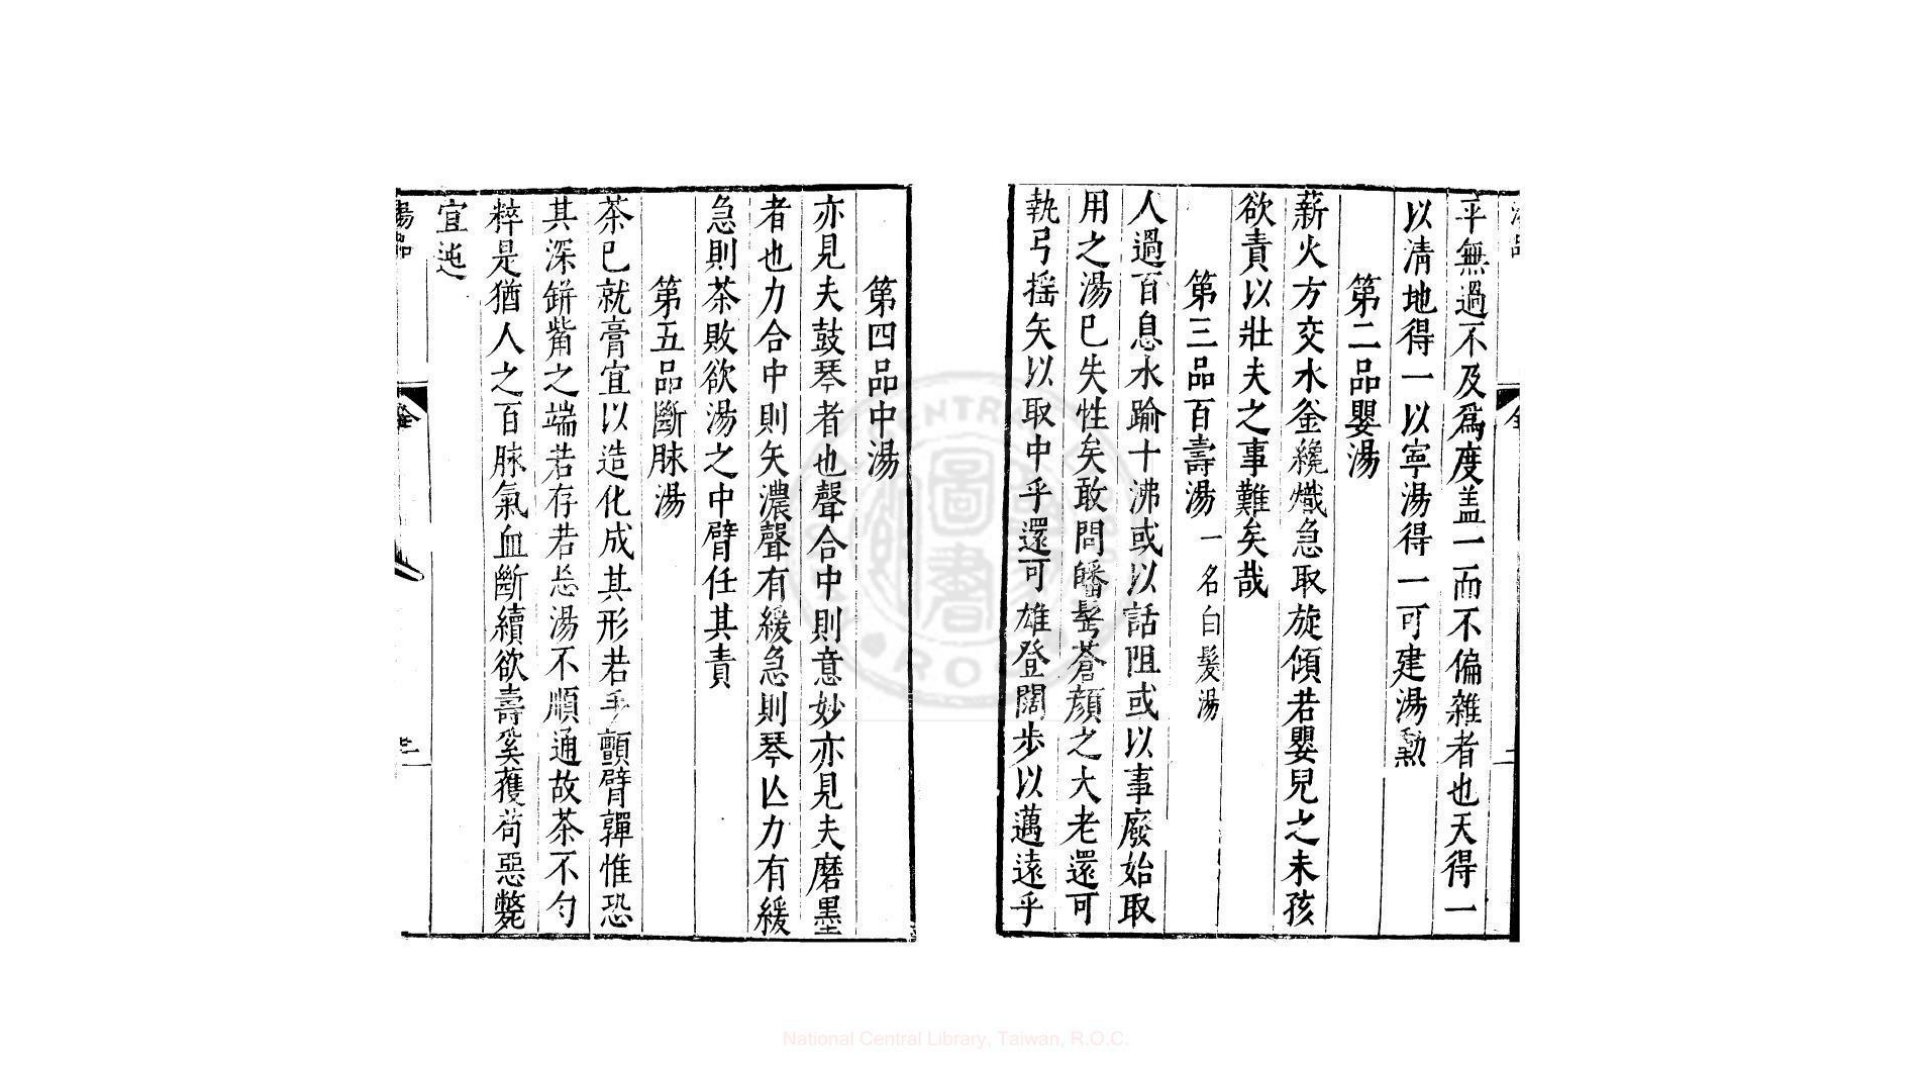 平無過不及爲度盖一而不偏雜者也天得一
以淸地得一以寧湯得一可建湯勲
第二品嬰湯
薪火方交水釜纔熾急取旋傾若嬰兒之未孩
欲責以壯夫之事難矣哉
第三品百壽湯 一名白髮湯
人過百息水踰十沸或以話阻或以事廢始取
用之湯已失性矣敢問皤髩蒼顔之大老還可
執弓揺矢以取中乎還可雄登闊歩以邁遠乎
第四品中湯
亦見夫鼓琴者也聲合中則意妙亦見夫磨墨
者也力合中則矢濃聲有緩急則琴亾力有緩
急則茶敗欲湯之中臂任其責
第五品斷脉湯
茶已就膏宜以造化成其形若手顫臂嚲惟恐
其深缾觜之端若存若忘湯不順通故茶不勻
粹是猶人之百脉氣血斷續欲壽奚獲苟惡斃
宜逃
湯品
三
National Central Library, Taiwan, R.O.C.